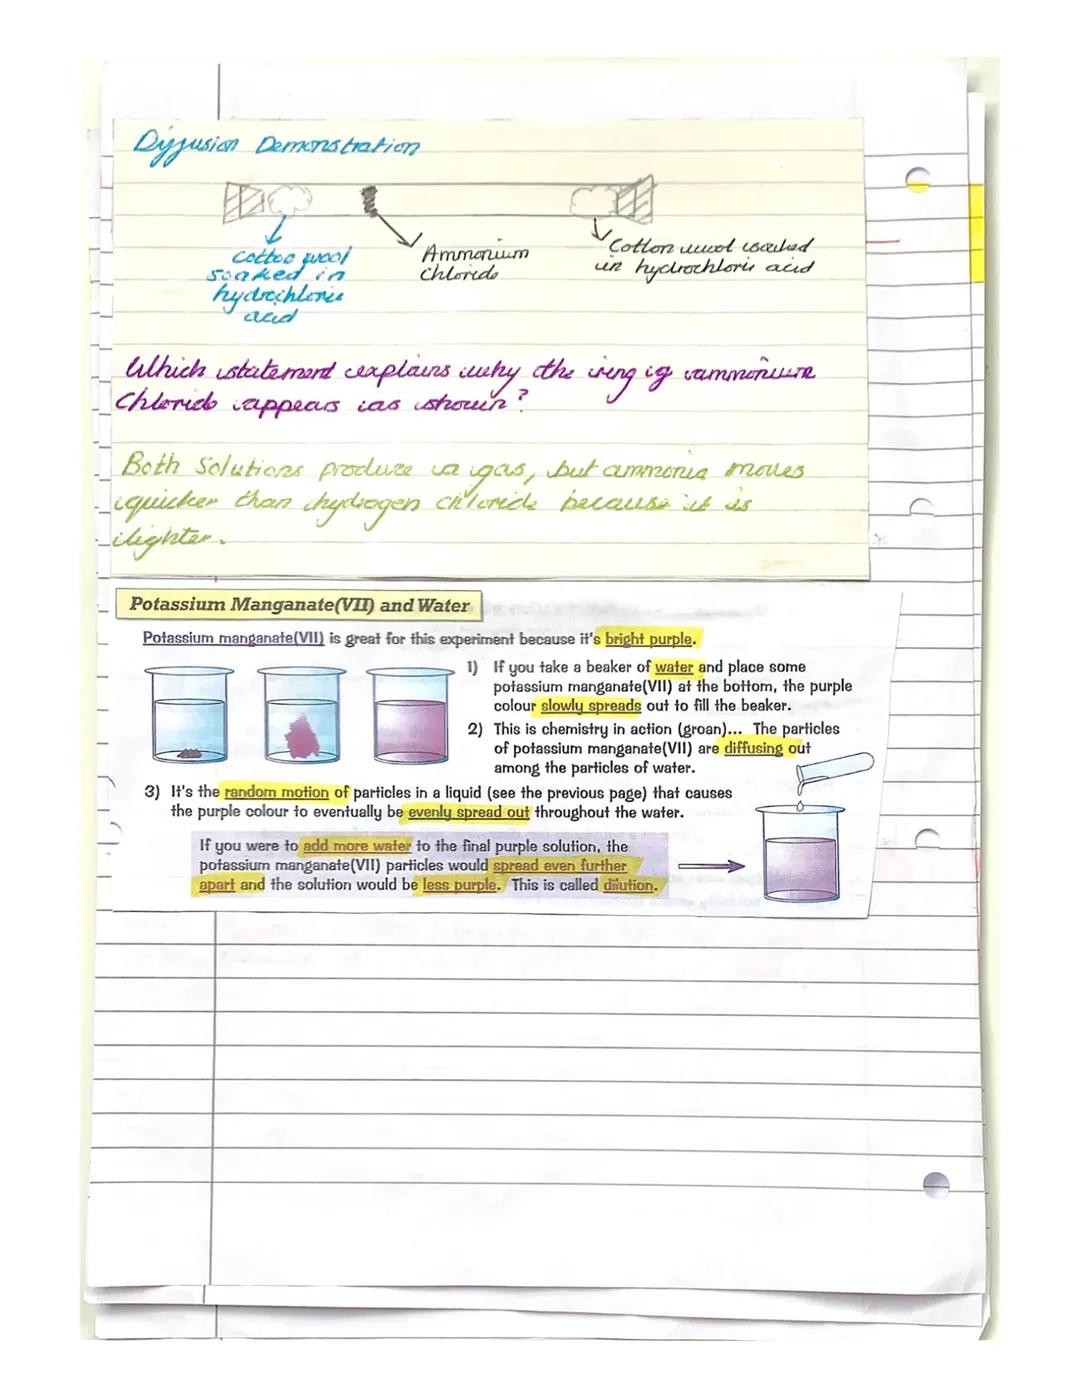 Diffusion Demonstration
Cotton wool
soaked in
hydrochloric
acid
Ammonium
Chloride
Cotton wool soaked
in hydrochloric acid
Which statement explains why the ring of ammonium
Chloride appears as shown?
Both Solutions produce a gas, but ammonia moves
quicker than hydrogen chloride because it is
lighter.
Potassium Manganate(VII) and Water
Potassium manganate(VII) is great for this experiment because it's bright purple.
1) If you take a beaker of water and place some
potassium manganate(VII) at the bottom, the purple
colour slowly spreads out to fill the beaker.
2) This is chemistry in action (groan)... The particles
of potassium manganate(VII) are diffusing out
among the particles of water.
3) It's the random motion of particles in a liquid (see the previous page) that causes
the purple colour to eventually be evenly spread out throughout the water.
If you were to add more water to the final purple solution, the
potassium manganate(VII) particles would spread even further
apart and the solution would be less purple. This is called dilution.